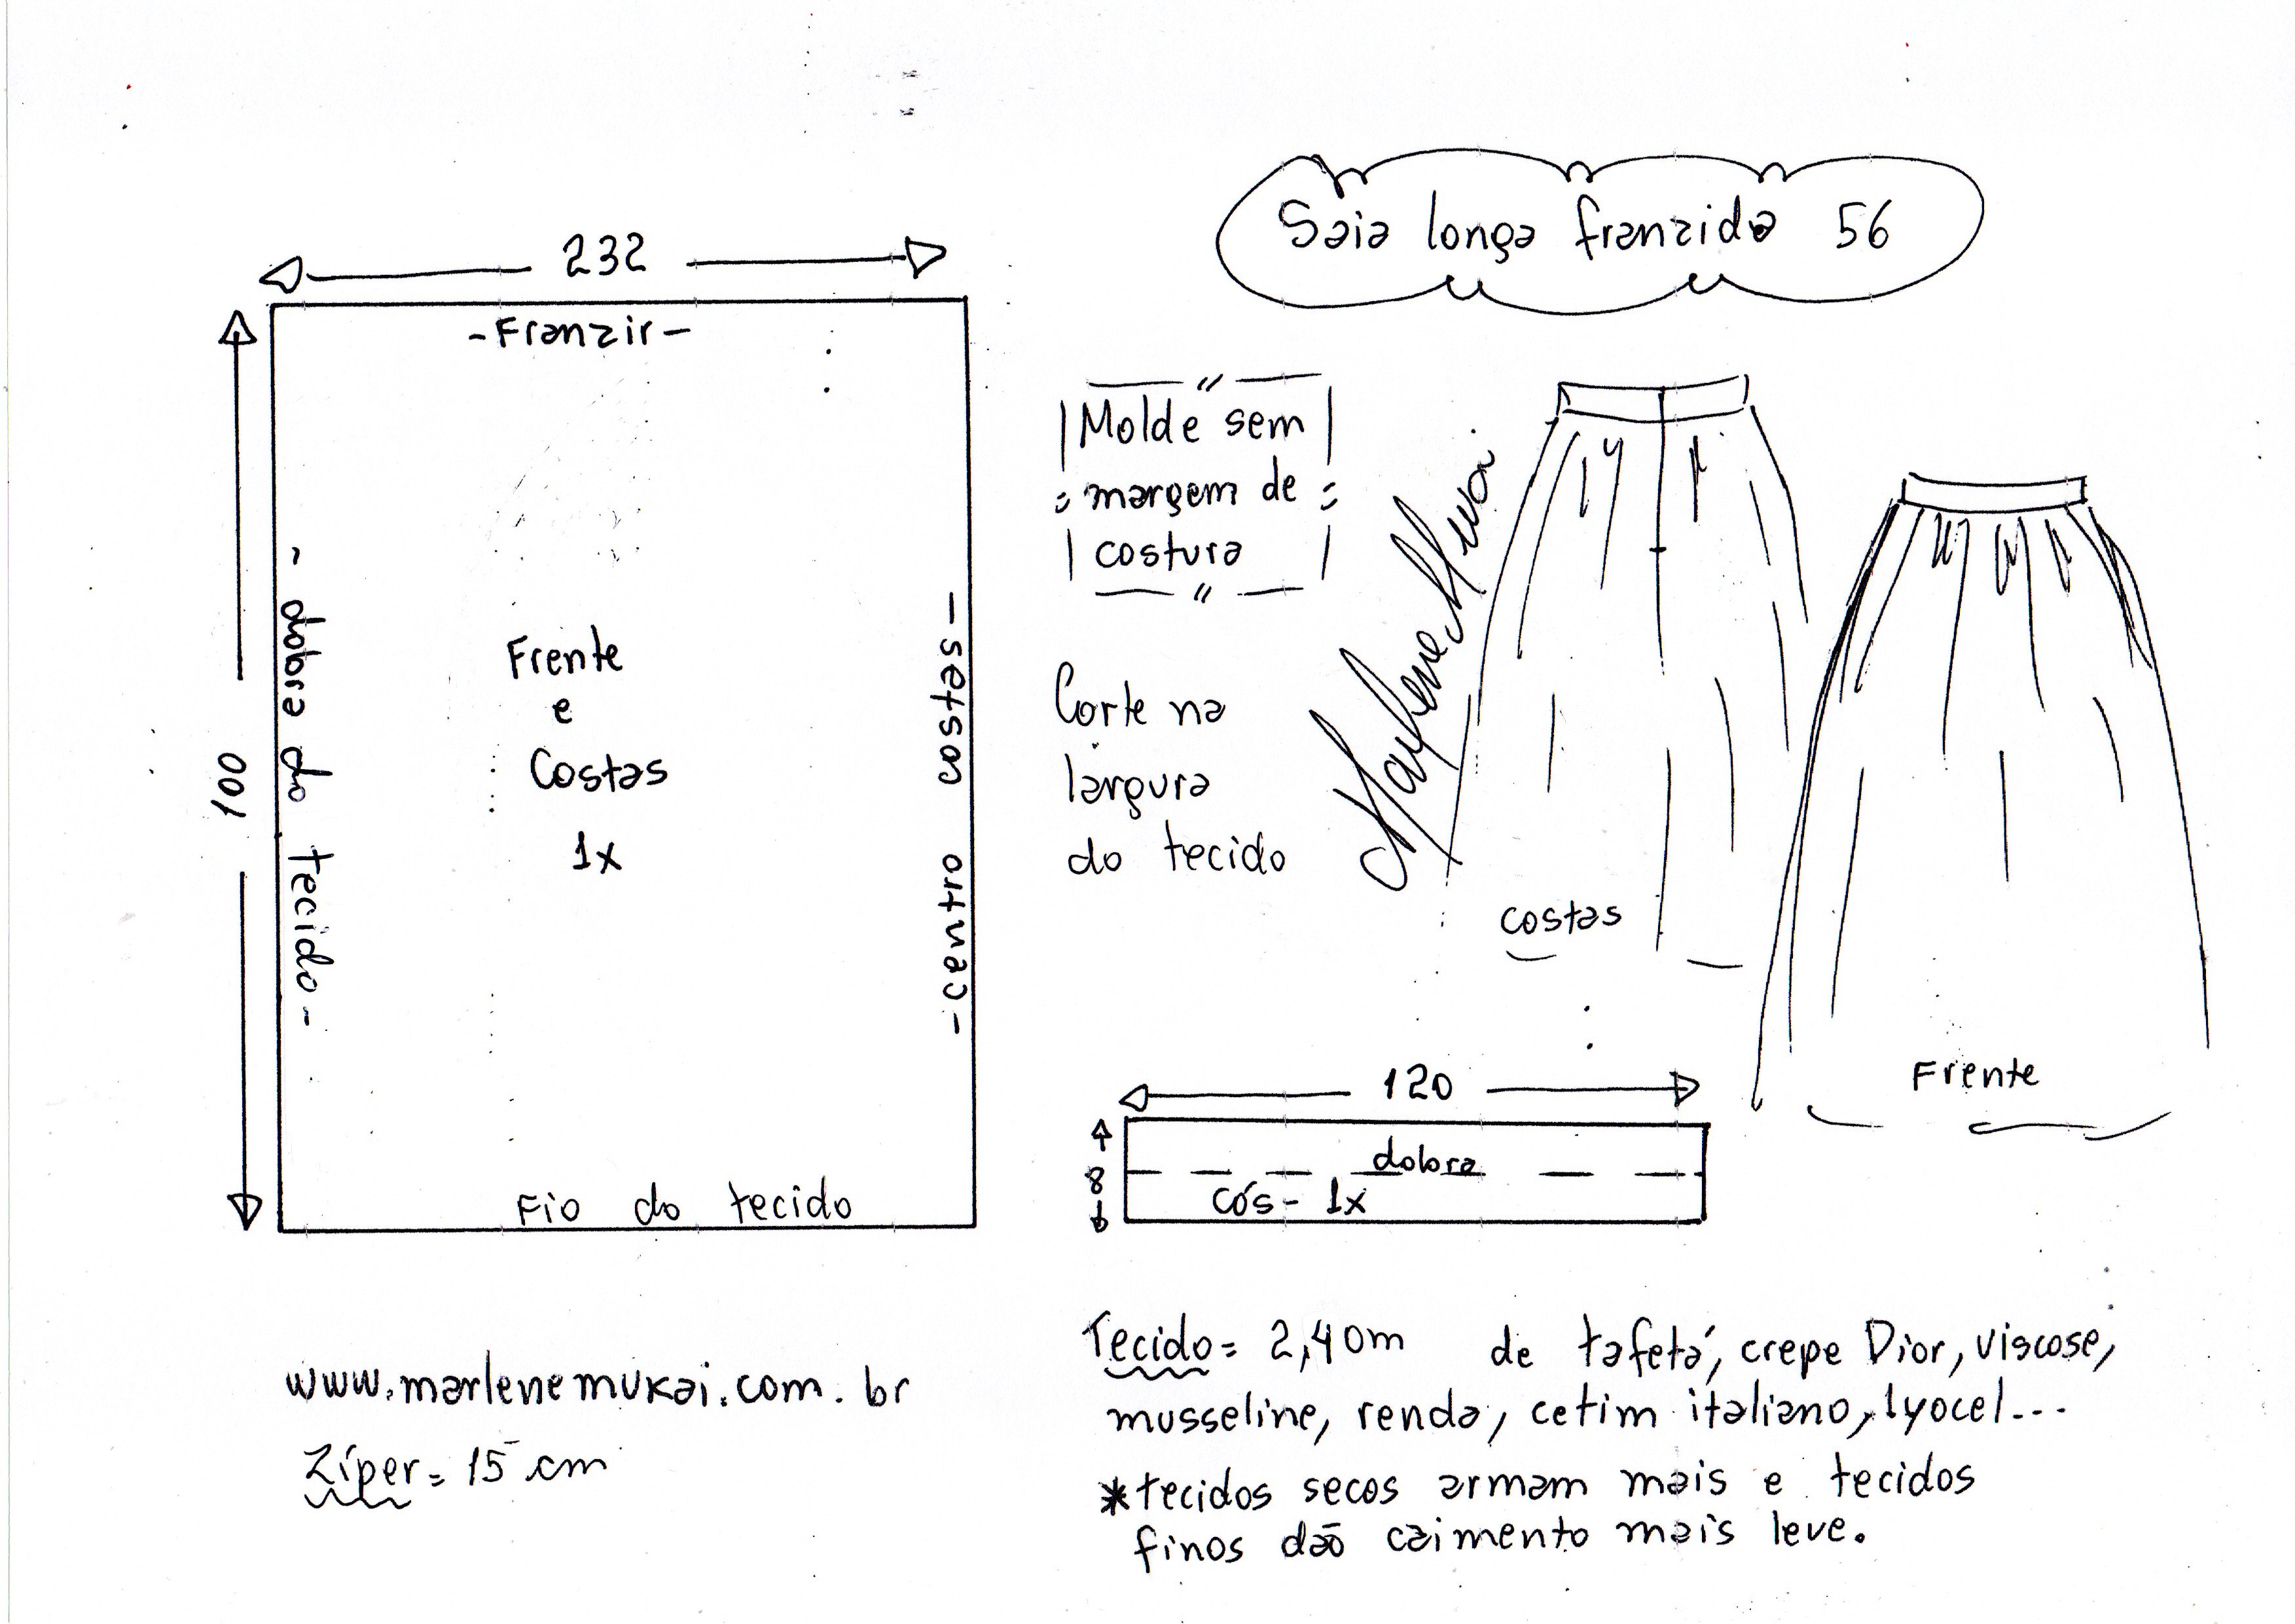 Saia longa franzida 56
232
-Franzir-
100
- dobra do tecido -
Frente
e
Costas
1x
- centro costas -
Fio do tecido
Molde sem
margem de
costura
Corte na
largura
do tecido
Marlene Mukai
costas
Frente
120
8
dobra
cós - 1x
www.marlenemukai.com.br
Zíper = 15 cm
Tecido = 2,40m de tafetá, crepe Dior, viscose,
musseline, renda, cetim italiano, lyocel...
*tecidos secos armam mais e tecidos
finos dão caimento mais leve.